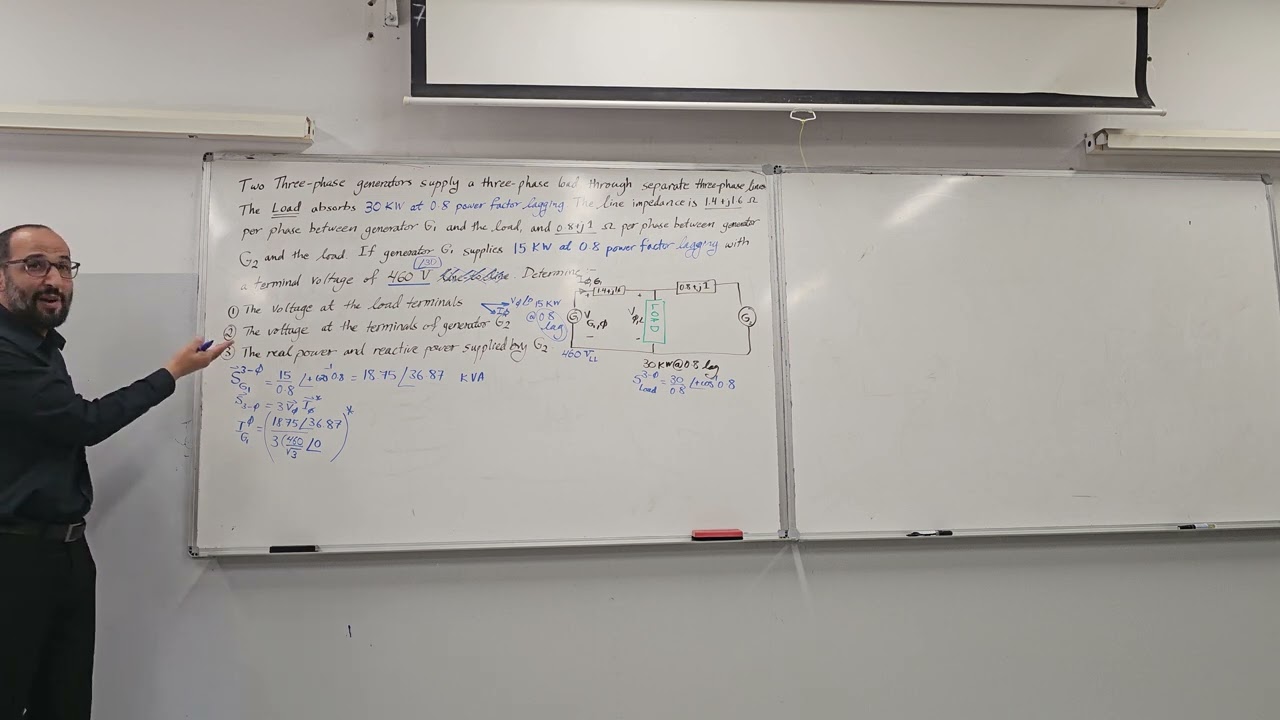 Two Three-phase generators supply a three-phase load through separate three-phase lines
The Load absorbs 30 KW at 0.8 power factor lagging. The line impedance is 1.4+j1.6 Ω
per phase between generator G1 and the load, and 0.8+j1 Ω per phase between generator
G2 and the load. If generator G1 supplies 15 KW at 0.8 power factor lagging with
a terminal voltage of 460 V Determine:-
① The Voltage at the load terminals
② The voltage at the terminals of generator G2
③ The real power and reactive power supplied by G2
15 KW
@ 0.8
lag
1.4+j1.6
0.8+j1
G
LOAD
G
460 VLL
30 KW @ 0.8 lag
S 3-Φ Load = 30/0.8 ∠+cos⁻¹ 0.8
S 3-Φ G1 = 15/0.8 ∠+cos⁻¹ 0.8 = 18.75 ∠36.87 KVA
S 3-Φ = 3 VΦ IΦ*
I Φ G1 = (18.75 ∠36.87 / 3(460/√3 ∠0)*